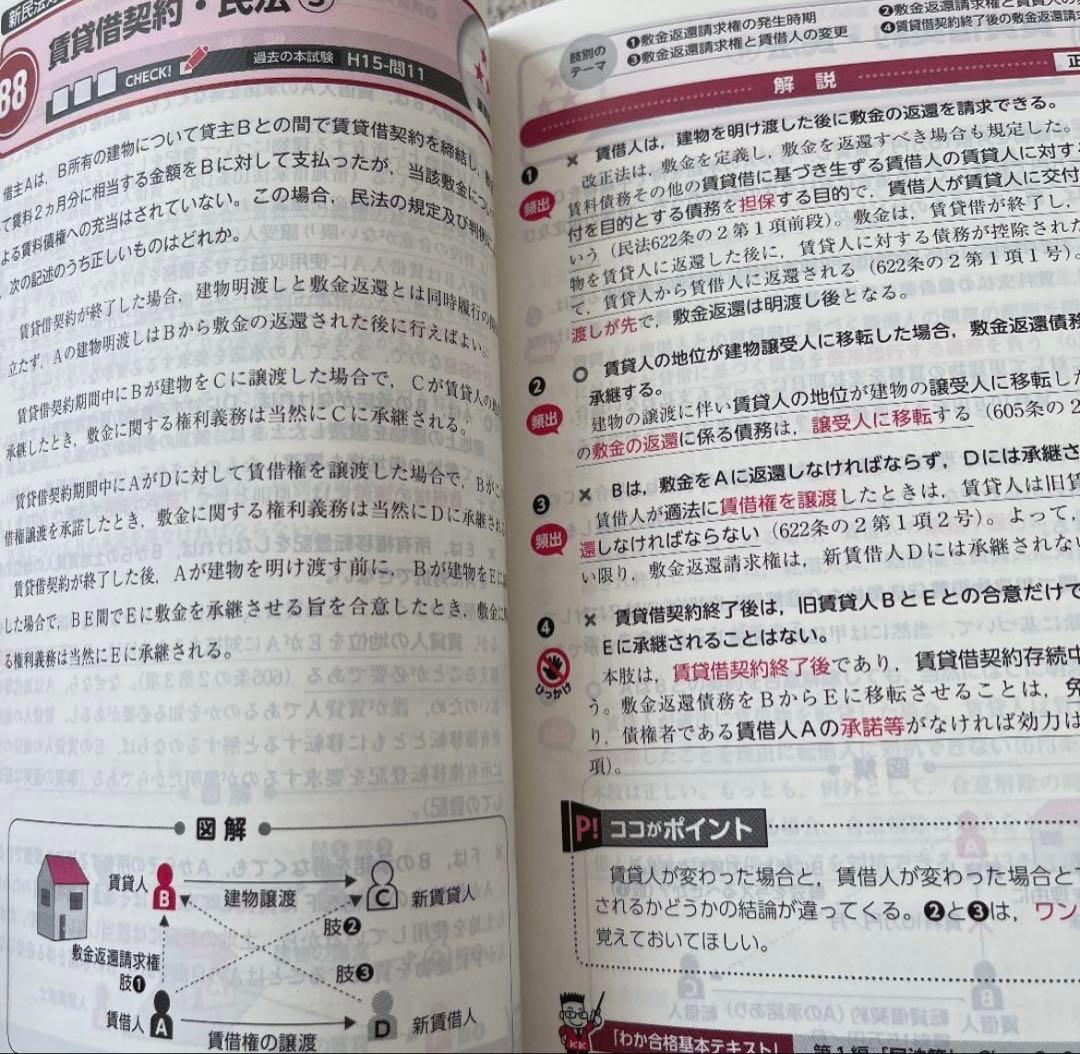 新民法対
賃貸借契約・民法⑤
88
CHECK!
過去の本試験 H15-問11
借主Aは，B所有の建物について貸主Bとの間で賃貸借契約を締結し，敷
て賃料2カ月分に相当する金額をBに対して支払ったが，当該敷金につい
よる賃料債権への充当はされていない。この場合，民法の規定及び判例に
，次の記述のうち正しいものはどれか。
賃貸借契約が終了した場合，建物明渡しと敷金返還とは同時履行の関
立たず，Aの建物明渡しはBから敷金の返還された後に行えばよい。
賃貸借契約期間中にBが建物をCに譲渡した場合で，Cが賃貸人の
承継したとき，敷金に関する権利義務は当然にCに承継される。
賃貸借契約期間中にAがDに対して賃借権を譲渡した場合で，Bがこ
借権譲渡を承諾したとき，敷金に関する権利義務は当然にDに承継され
賃貸借契約が終了した後，Aが建物を明け渡す前に，Bが建物をEに
した場合で，BE間でEに敷金を承継させる旨を合意したとき，敷金に
る権利義務は当然にEに承継される。
図解
賃貸人
B
建物譲渡
C
新賃貸人
肢❷
敷金返還請求権
肢❶
肢❸
賃借人
A
賃借権の譲渡
D
新賃借人
肢別の
テーマ
❶敷金返還請求権の発生時期
❷敷金返還請求権と賃貸人の
❸敷金返還請求権と賃借人の変更
❹賃貸借契約終了後の敷金返還請求
解説
正
❶
頻出
× 賃借人は，建物を明け渡した後に敷金の返還を請求できる。
改正法は，敷金を定義し，敷金を返還すべき場合も規定した。
賃料債務その他の賃貸借に基づき生ずる賃借人の賃貸人に対す
付を目的とする債務を担保する目的で，賃借人が賃貸人に交付
いう（民法622条の2第1項前段）。敷金は，賃貸借が終了し，
物を賃貸人に返還した後に，賃貸人に対する債務が控除された
て，賃貸人から賃借人に返還される（622条の2第1項1号）。
渡しが先で，敷金返還は明渡し後となる。
❷
頻出
○ 賃貸人の地位が建物譲受人に移転した場合，敷金返還債務
承継する。
建物の譲渡に伴い賃貸人の地位が建物の譲受人に移転した
の敷金の返還に係る債務は，譲受人に移転する（605条の2
❸
頻出
× Bは，敷金をAに返還しなければならず，Dには承継さ
賃借人が適法に賃借権を譲渡したときは，賃貸人は旧賃
還しなければならない（622条の2第1項2号）。よって，
い限り，敷金返還請求権は，新賃借人Dには承継されな
❹
ひっかけ
× 賃貸借契約終了後は，旧賃貸人BとEとの合意だけで
Eに承継されることはない。
本肢は，賃貸借契約終了後であり，賃貸借契約存続中
う。敷金返還債務をBからEに移転させることは，免
り，債権者である賃借人Aの承諾等がなければ効力は
項）。
P! ココがポイント
賃貸人が変わった場合と，賃借人が変わった場合と
されるかどうかの結論が違ってくる。❷と❸は，ワン
覚えておいてほしい。
KK
「わか合格基本テキスト」